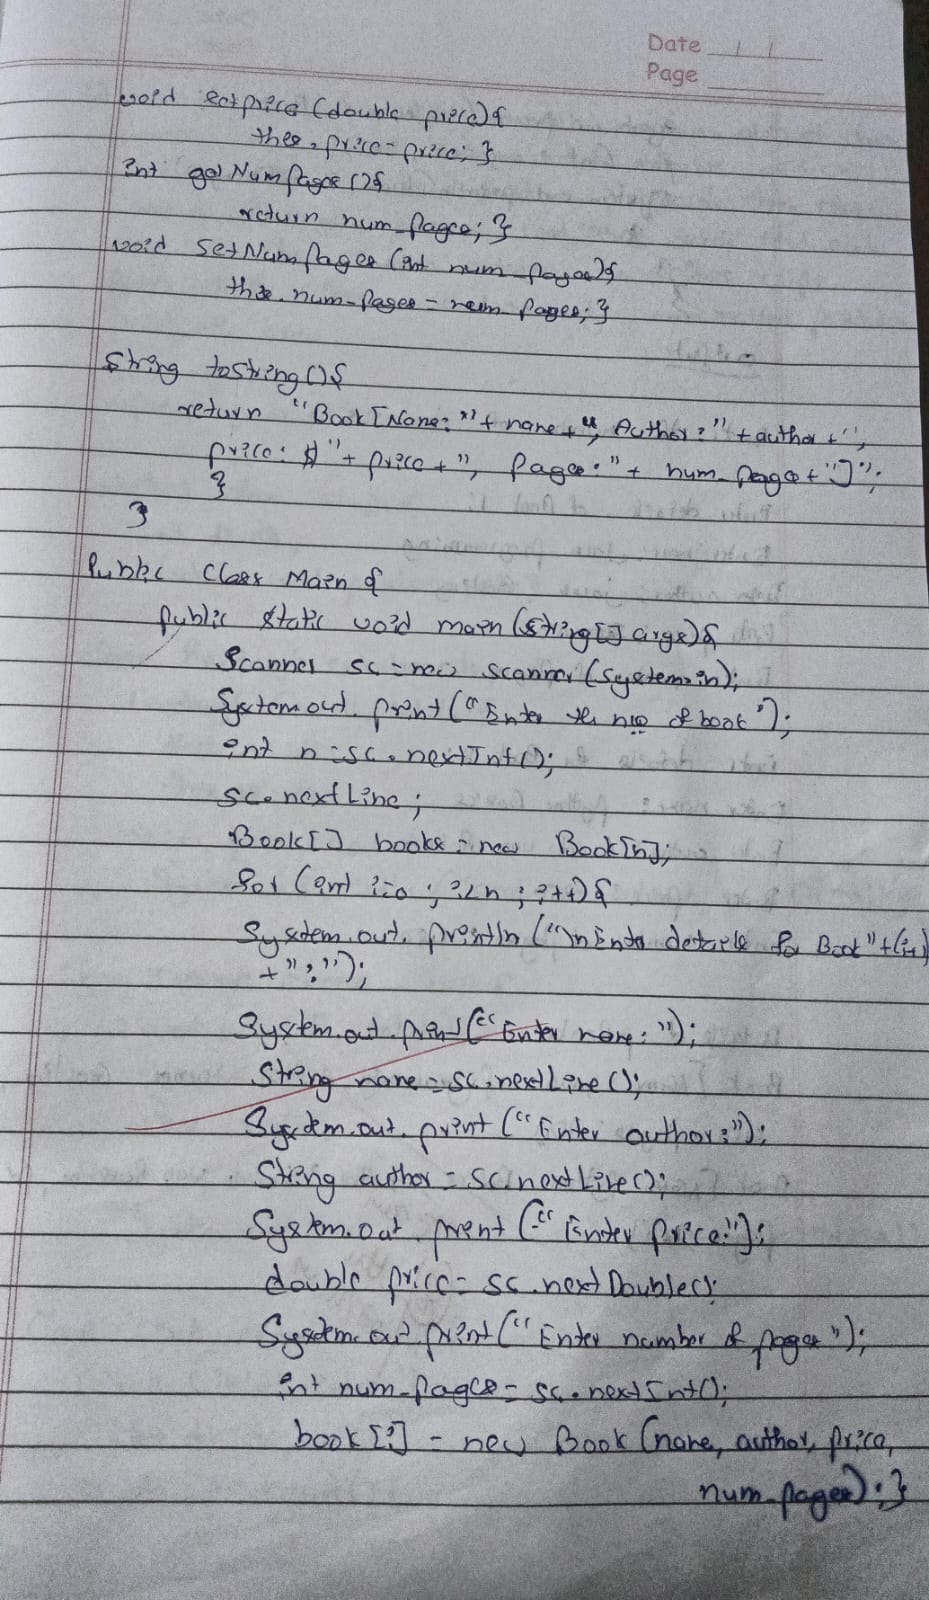 Date / /
Page
void setprice (double price){
this. price = price; }
int getNumPages (){
return num_pages; }
void setNumPages (int num_pages){
this. num_pages = num_pages; }
String toString(){
return "Book [Name: "+ name + ", Author: " + author + ",
price: $" + price + ", Pages: " + num_pages + "]";
}
}
Public Class Main {
public static void main (String[] args){
Scanner sc = new scanner (System.in);
System.out. print ("Enter the no of book ");
int n = sc. nextInt();
sc. nextLine ;
Book[] books = new Book[n];
for (int i=0 ; i<n ; i++){
System.out. println ("\nEnter details for Book " +(i+1)
+ ":");
System.out.print ("Enter name: ");
String name = sc.nextLine ();
System.out. print ("Enter author: ");
String author = sc.nextLine();
System.out. print ("Enter price:");
double price = sc.nextDouble();
System.out.print ("Enter number of pages ");
int num_pages = sc. nextInt();
book[i] = new Book (name, author, price,
num_pages); }